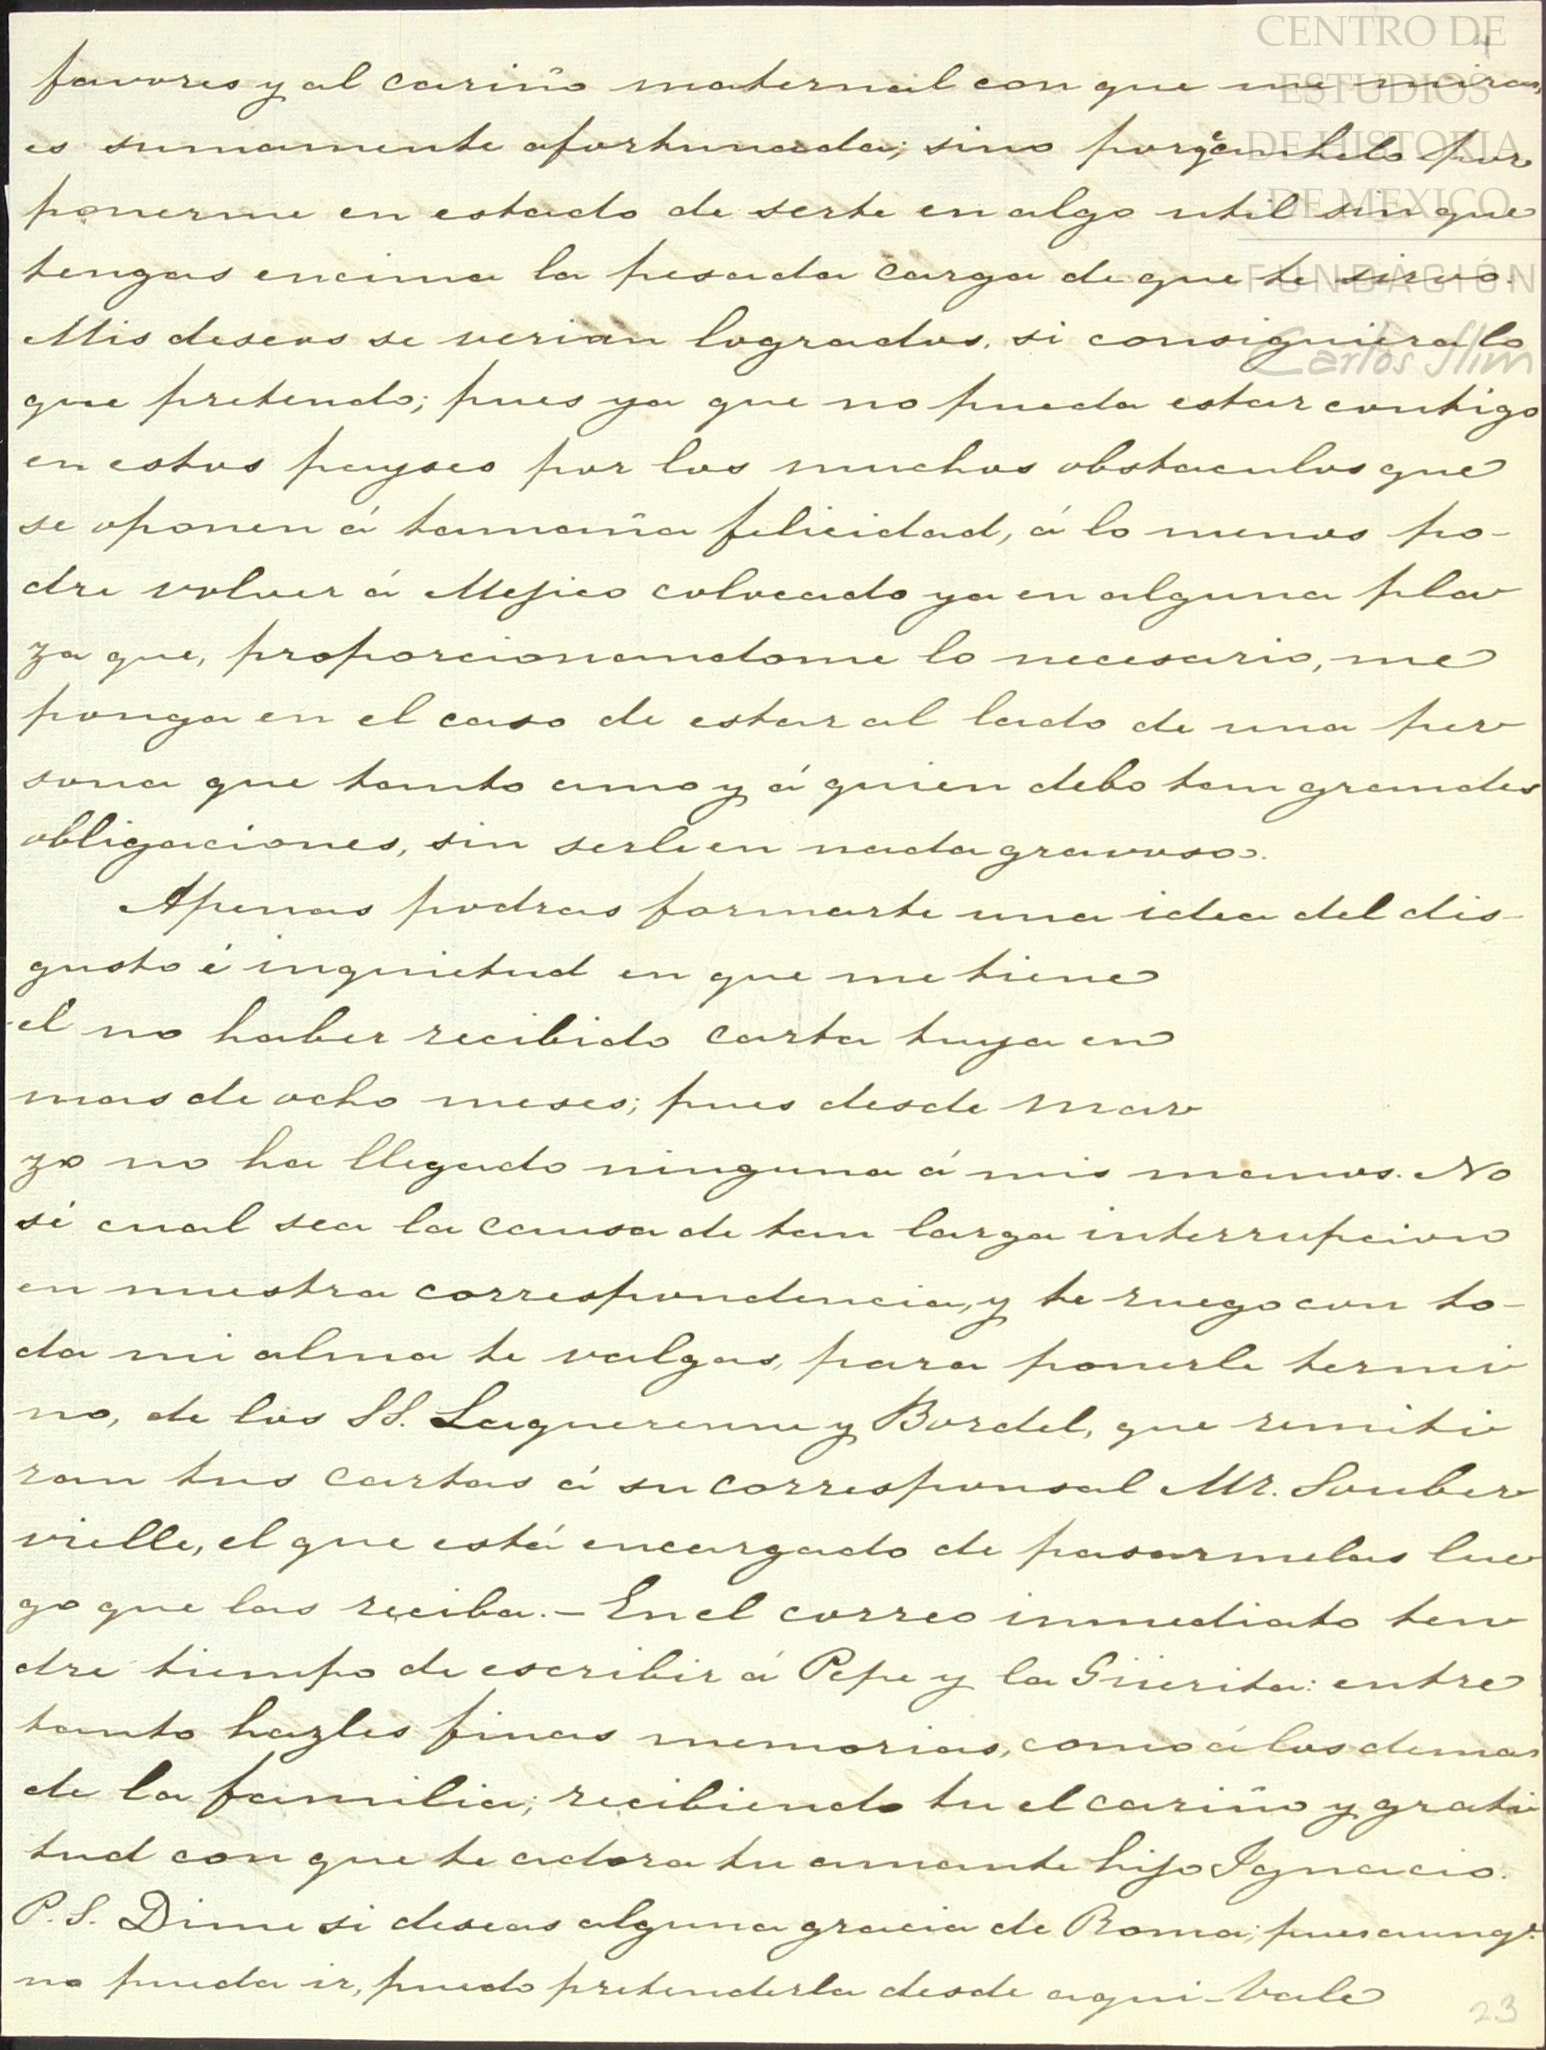 CENTRO DE
ESTUDIOS
DE HISTORIA
DE MEXICO
FUNDACIÓN
Carlos Slim
favores y al cariño maternal con que me miras,
es sumamente afortunada; sino porqe anhelo por
ponerme en estado de serte en algo util sin que
tengas encima la pesada carga de que te sirvo.
Mis deseos se verian logrados, si consiguiera lo
que pretendo; pues ya que no pueda estar contigo
en estos payses por los muchos obstaculos que
se oponen á tamaña felicidad, á lo menos po-
dre volver á Mejico colocado ya en alguna pla-
za que, proporcionandome lo necesario, me
ponga en el caso de estar al lado de una per-
sona que tanto amo y á quien debo tan grandes
obligaciones, sin serle en nada gravoso.
Apenas podras formarte una idea del dis-
gusto é inquietud en que me tiene
el no haber recibido carta tuya en
mas de ocho meses; pues desde mar-
zo no ha llegado ninguna á mis manos. No
sé cual sea la causa de tan larga interrupcion
en nuestra correspondencia, y te ruego con to-
da mi alma te valgas, para ponerle termi-
no, de los SS. Laguerenne y Bordel, que remiti-
ran tus cartas á su corresponsal Mr. Souber-
vielle, el que está encargado de pasarmelas lue-
go que las reciba. - En el correo inmediato ten-
dré tiempo de escribir á Pepe y la Güerita: entre
tanto hazles finas memorias, como á los demas
de la familia; recibiendo tu el cariño y grati-
tud con que te adora tu amante hijo Ignacio.
P. S. Dime si deseas alguna gracia de Roma; pues aunq.e
no pueda ir, puedo pretenderla desde aqui - Vale
23